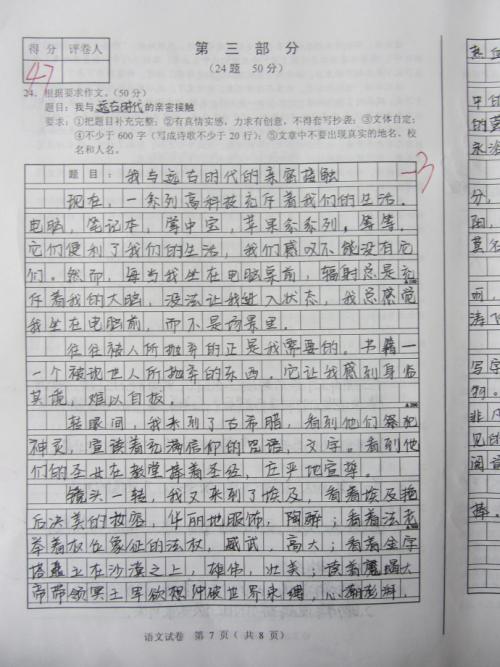 第三部分
得分 评卷人
47
（24题 50分）
24．根据要求作文。（50分）
题目：我与远古时代的亲密接触
要求：①把题目补充完整；②有真情实感，力求有创意，不得套写抄袭；③文体自定；
④不少于600字（写成诗歌不少于20行）；⑤文章中不要出现真实的地名、校
名和人名。
-3
题目：我与远古时代的亲密接触
现在，一系列高科技充斥着我们的生活。
电脑，笔记本，掌中宝，苹果系系列，等等，
它们便利了我们的生活，我们感叹不能没有它
们。然而，每当我坐在电脑桌前，辐射总是充
斥着我的大脑，没法让我进入状态，我总感觉
我坐在电脑前，而不是场景里。
往往被人所抛弃的正是我需要的。书籍一
一个被现世人所抛弃的东西，它让我感到身临
其境，难以自拔。
转眼间，我来到了古希腊，看到他们祭祀
神灵，宣读着充满信仰的咒语，文字。看到他
们的圣女在教堂捧着圣经，庄严地宣誓。
镜头一转，我又来到了埃及，看着埃及艳
后决美的妆容，华丽地服饰，陶醉；看着法老
举着权位象征的法杖，威武，高大；看着金字
塔矗立在沙漠之上，雄伟，壮美；读着魔
帝带领冥士军欲想冲破世界束缚，心潮澎湃。
语文试卷 第7页（共8页）